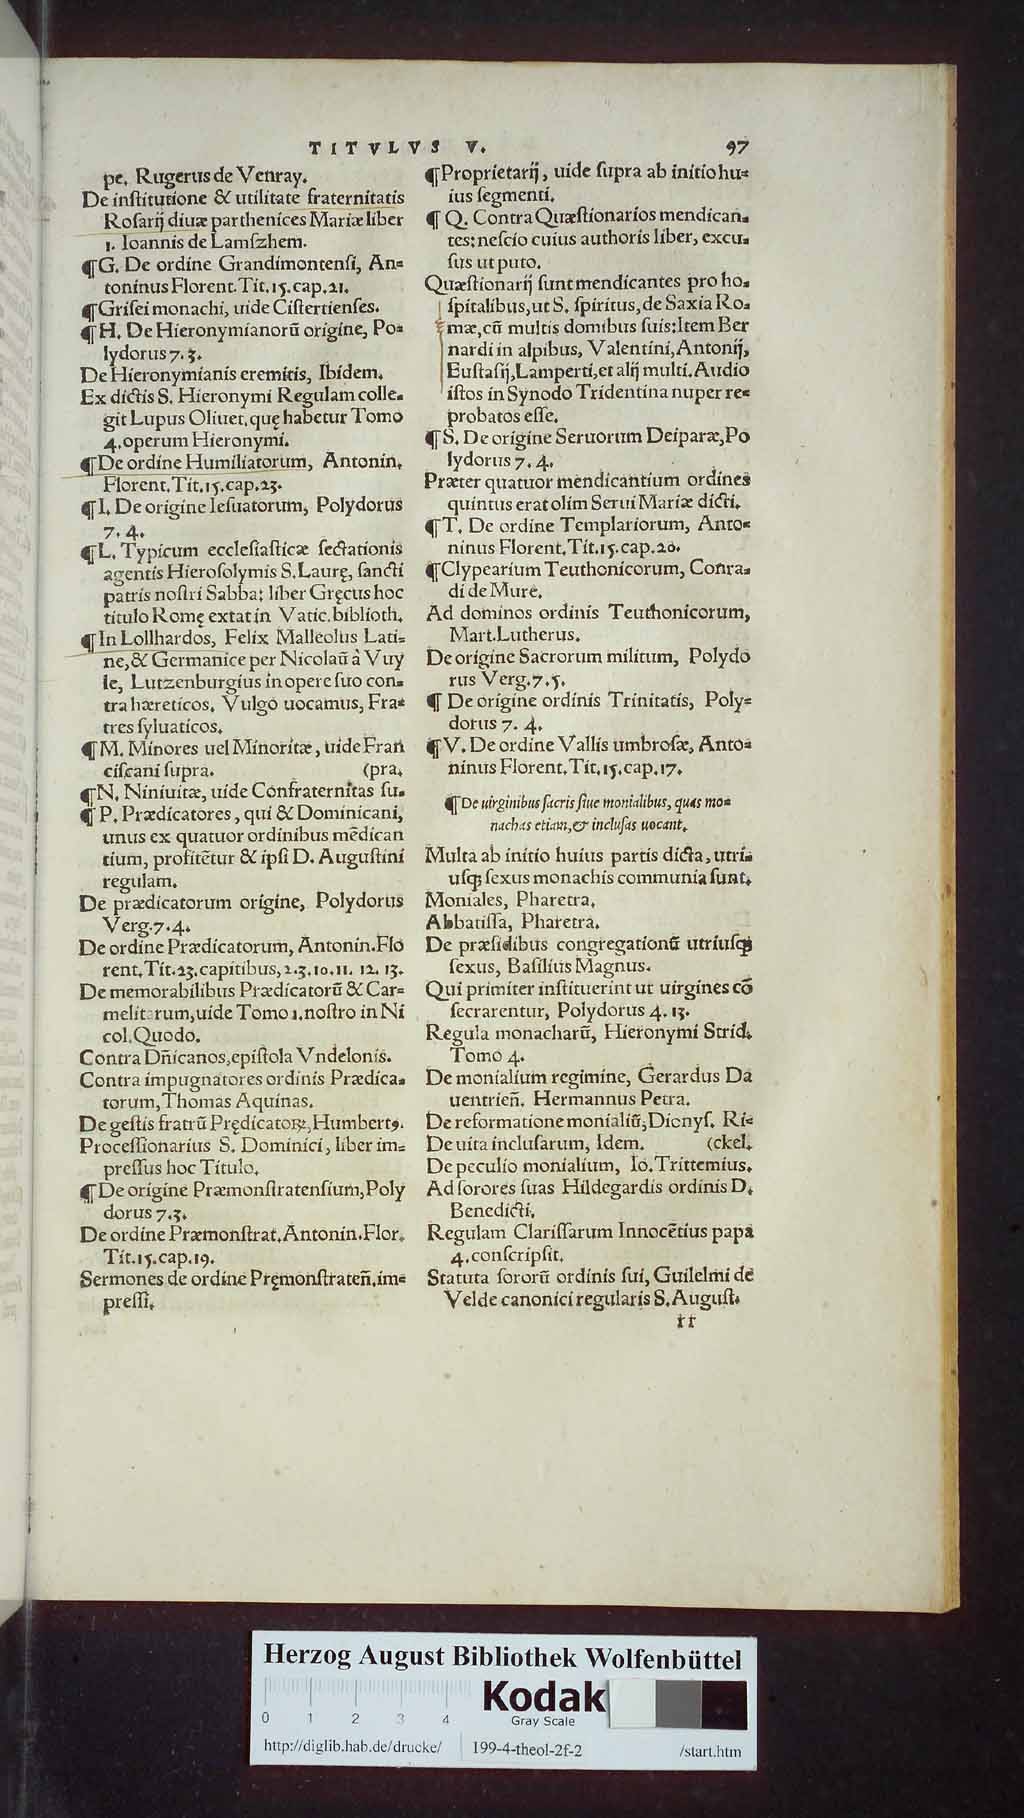 TITVLVS V. 97
pe. Rugerus de Venray.
De institutione & utilitate fraternitatis
Rosarij diuæ parthenices Mariæ liber
1. Ioannis de Lamszhem.
¶G. De ordine Grandimontensi, An-
toninus Florent. Tit.15.cap.21.
¶Grisei monachi, uide Cistertienses.
¶H. De Hieronymianorũ origine, Po-
lydorus 7.3.
De Hieronymianis eremitis, Ibidem.
Ex dictis S. Hieronymi Regulam colle-
git Lupus Oliuet. quę habetur Tomo
4.operum Hieronymi.
¶De ordine Humiliatorum, Antonin.
Florent. Tit.15.cap.23.
¶I. De origine Iesuatorum, Polydorus
7.4.
¶L. Typicum ecclesiasticæ sectationis
agentis Hierosolymis S. Laurę, sancti
patris nostri Sabba: liber Gręcus hoc
titulo Romę extat in Vatic. biblioth.
¶In Lollhardos, Felix Malleolus Lati-
ne, & Germanice per Nicolaũ à Vuy
le, Lutzenburgius in opere suo con-
tra hæreticos. Vulgo uocamus, Fra-
tres syluaticos.
¶M. Minores uel Minoritæ, uide Fran
ciscani supra. (pra.
¶N. Niniuitæ, uide Confraternitas su-
¶P. Prædicatores, qui & Dominicani,
unus ex quatuor ordinibus mẽdican
tium, profitẽtur & ipsi D. Augustini
regulam.
De prædicatorum origine, Polydorus
Verg.7.4.
De ordine Prædicatorum, Antonin. Flo
rent. Tit.23.capitibus, 2.3.10.11. 12. 13.
De memorabilibus Prædicatorũ & Car-
melitarum, uide Tomo 1. nostro in Ni
col. Quodo.
Contra Dñicanos, epistola Vndelonis.
Contra impugnatores ordinis Prædica-
torum, Thomas Aquinas.
De gestis fratrũ Prędicatoꝝ, Humbertꝰ.
Processionarius S. Dominici, liber im-
pressus hoc Titulo.
¶De origine Præmonstratensium, Poly
dorus 7.3.
De ordine Præmonstrat. Antonin. Flor.
Tit.15.cap.19.
Sermones de ordine Pręmonstrateñ. im-
pressi.
¶Proprietarij, uide supra ab initio hu-
ius segmenti.
¶Q. Contra Quæstionarios mendican-
tes: nescio cuius authoris liber, excu-
sus ut puto.
Quæstionarij sunt mendicantes pro ho-
spitalibus, ut S. spiritus, de Saxia Ro-
mæ, cũ multis domibus suis: Item Ber
nardi in alpibus, Valentini, Antonij,
Eustasij, Lamperti, et alij multi. Audio
istos in Synodo Tridentina nuper re-
probatos esse.
¶S. De origine Seruorum Deiparæ, Po
lydorus 7.4.
Præter quatuor mendicantium ordines
quintus erat olim Serui Mariæ dicti.
¶T. De ordine Templariorum, Anto-
ninus Florent. Tit.15.cap.20.
¶Clypearium Teuthonicorum, Conra-
di de Mure.
Ad dominos ordinis Teuthonicorum,
Mart. Lutherus.
De origine Sacrorum militum, Polydo
rus Verg.7.5.
¶De origine ordinis Trinitatis, Poly-
dorus 7.4.
¶V. De ordine Vallis umbrosæ, Anto-
ninus Florent. Tit.15.cap.17.
¶De uirginibus sacris siue monialibus, quas mo-
nachas etiam, & inclusas uocant.
Multa ab initio huius partis dicta, utri-
usq; sexus monachis communia sunt.
Moniales, Pharetra.
Abbatissa, Pharetra.
De præsidibus congregationũ utriusq;
sexus, Basilius Magnus.
Qui primiter instituerint ut uirgines cõ
secrarentur, Polydorus 4.13.
Regula monacharũ, Hieronymi Strid.
Tomo 4.
De monialium regimine, Gerardus Da
uentrieñ. Hermannus Petra.
De reformatione monialiũ, Dionys. Ri-
De uita inclusarum, Idem. (ckel.
De peculio monialium, Io. Trittemius.
Ad sorores suas Hildegardis ordinis D.
Benedicti.
Regulam Clarissarum Innocẽtius papa
4.conscripsit.
Statuta sororũ ordinis sui, Guilelmi de
Velde canonici regularis S. August.
rr
Herzog August Bibliothek Wolfenbüttel
Kodak
Gray Scale
0 1 2 3 4
http://diglib.hab.de/drucke/ 199-4-theol-2f-2 /start.htm